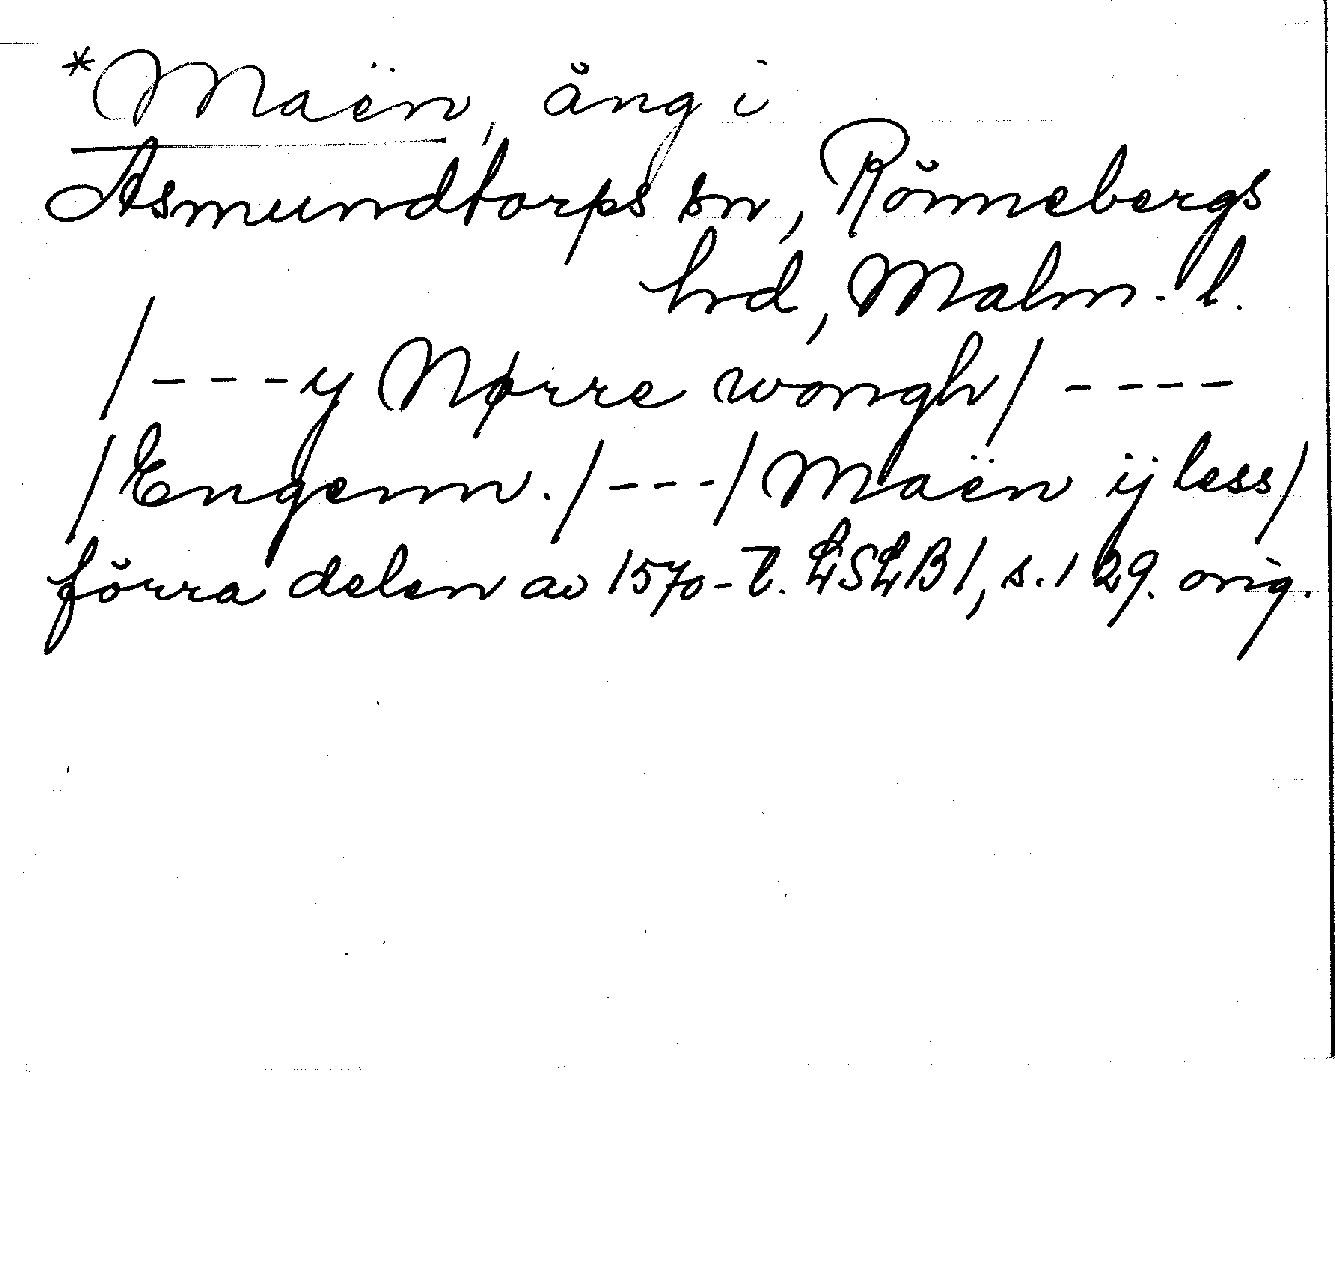 *Maën, äng i
Asmundtorps sn, Rönnebergs
hd, Malm. l.
/---y Nørre wongh/----
/Engenn./---/Maën ij less/
förra delen av 1570-t. LSLB1, s.129. orig.